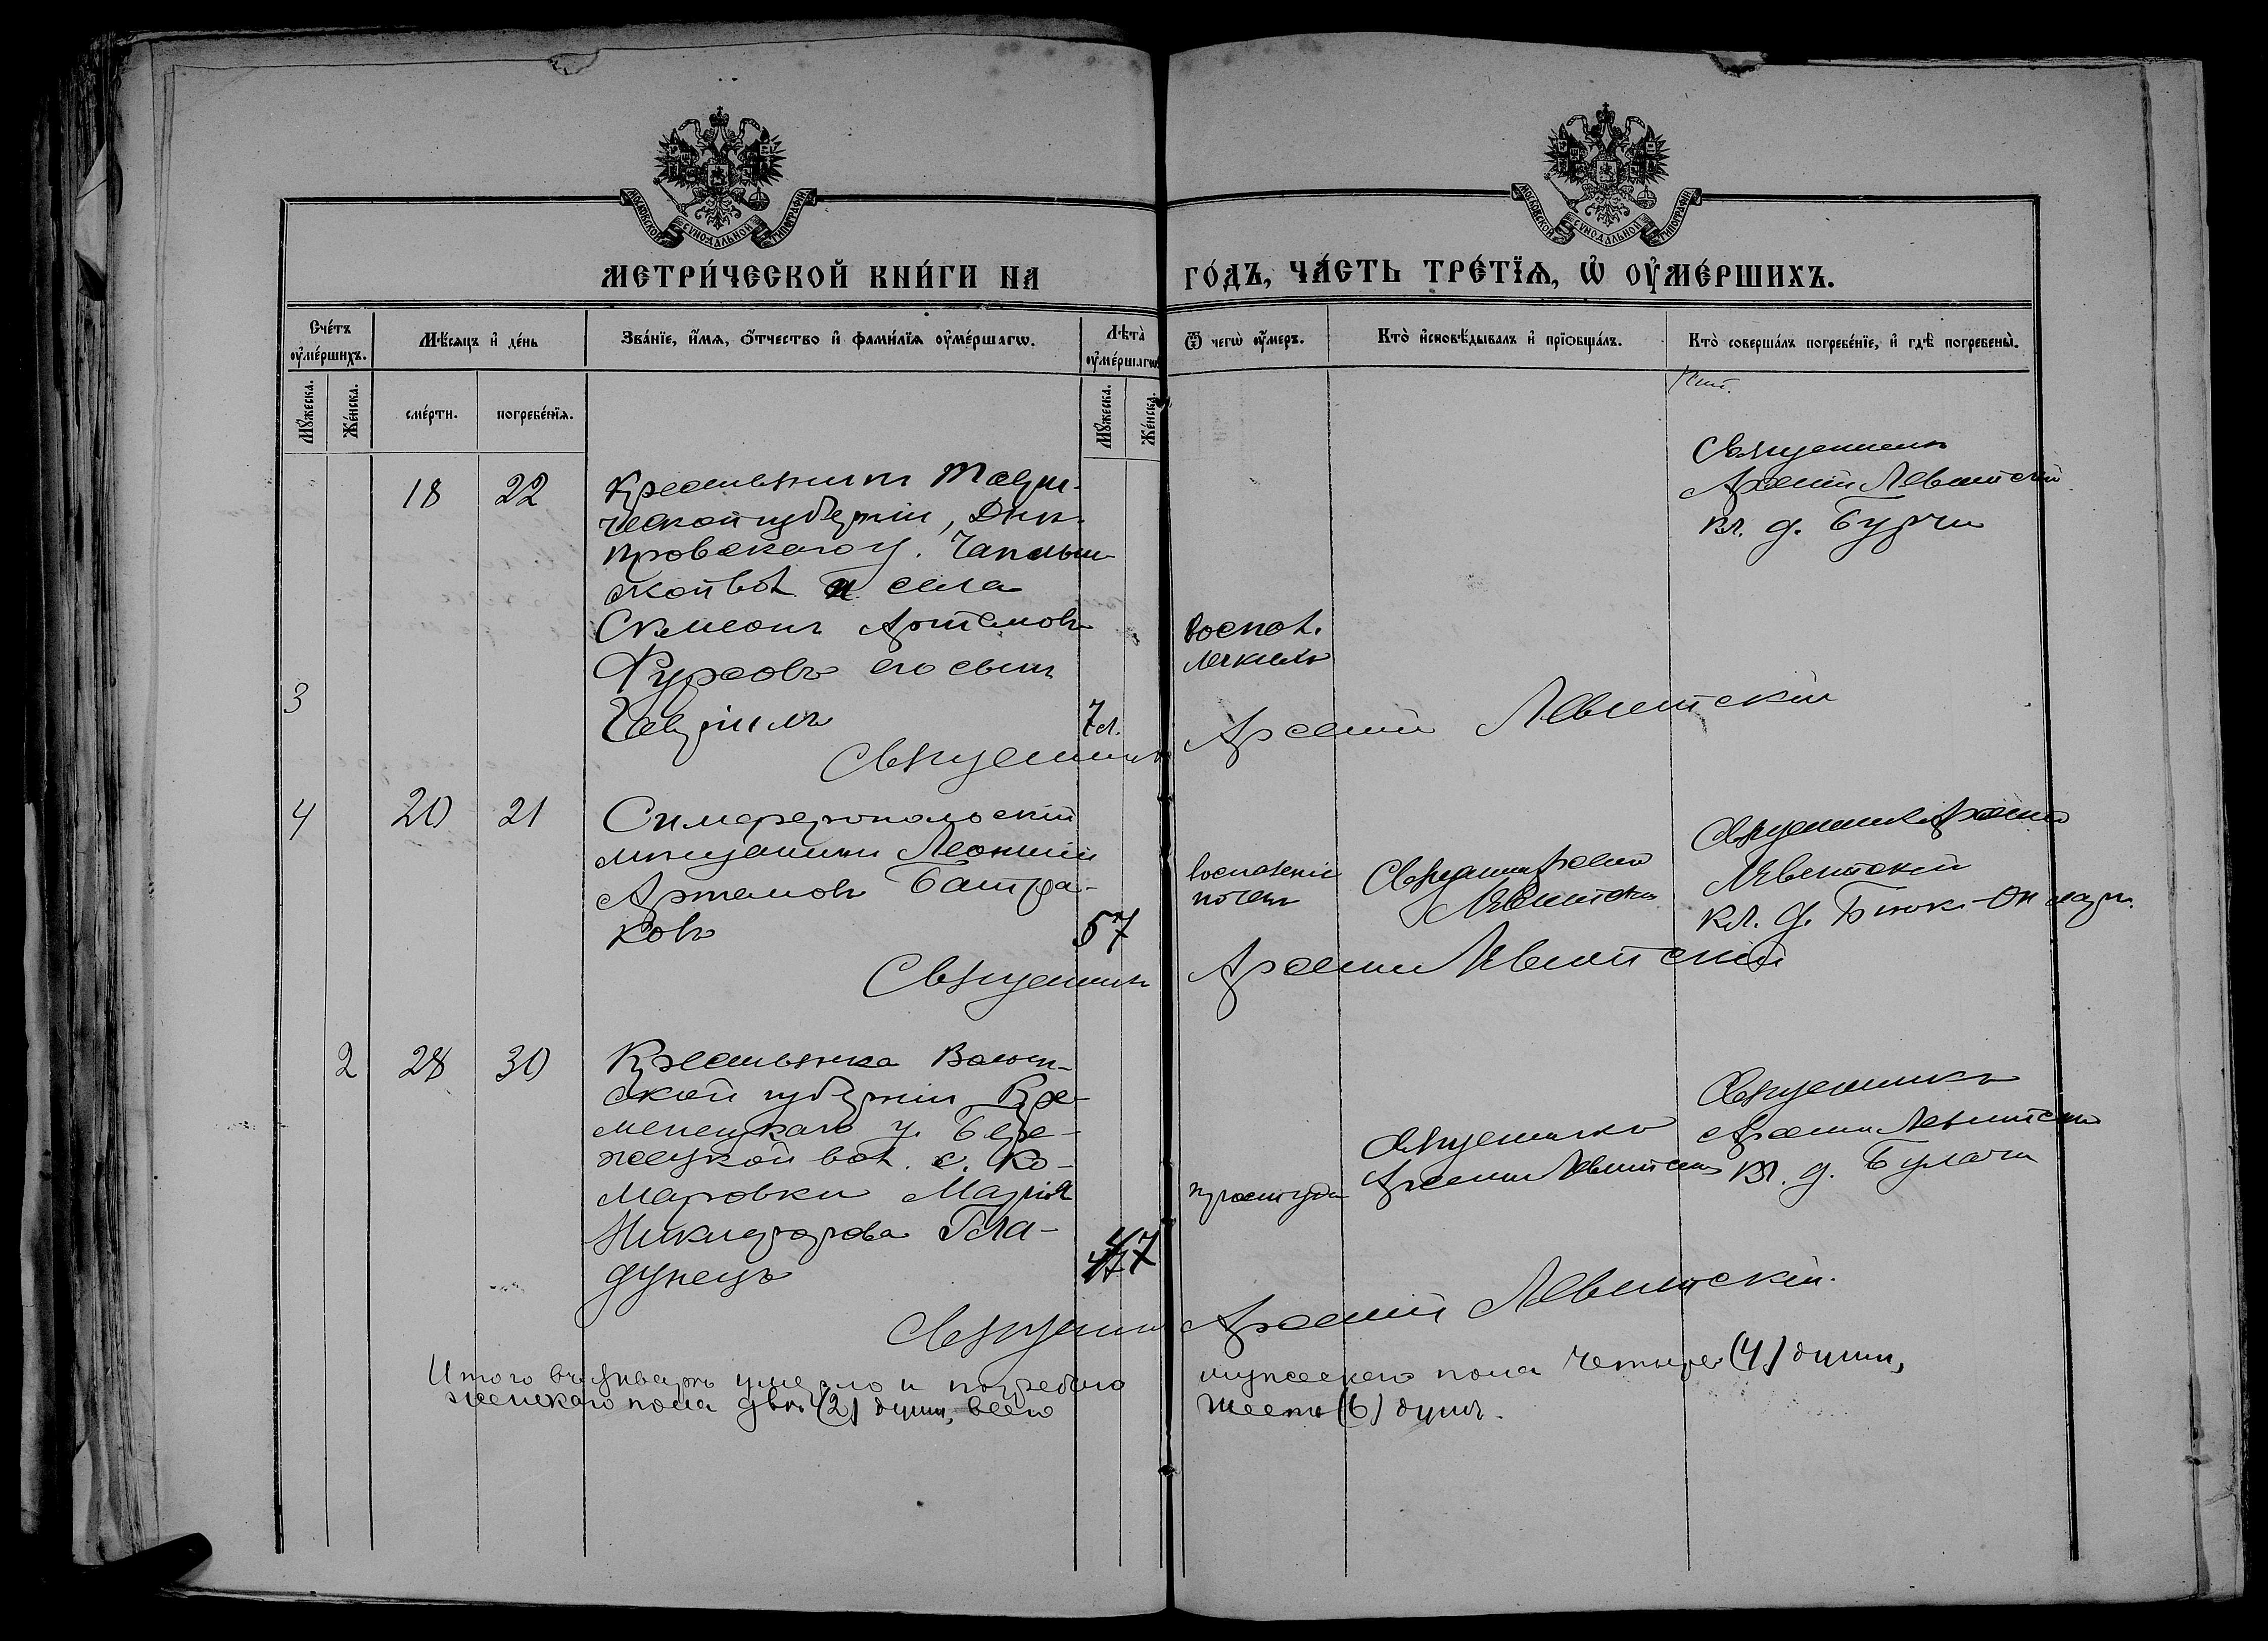 МОСКОВСКОЙ СѴНОДАЛЬНОЙ ТИПОГРАФІИ
МОСКОВСКОЙ СѴНОДАЛЬНОЙ ТИПОГРАФІИ
МЕТРИ́ЧЕСКОЙ КНИ́ГИ НА
ГО́ДЪ, ЧА́СТЬ ТРЕ́ТЇѦ, Ѡ҆ ОУ҆МЕ́РШИХЪ.
Сче́тъ
оу҆ме́ршихъ.
Мѣ́сяцъ и҆ де́нь
Зва́нїе, и҆́мѧ, ѻ҆́тчество и҆ фами́лїѧ оу҆ме́ршагѡ.
Лѣ́та
оу҆ме́ршагѡ
Ѿ чегѡ̀ оу҆́меръ.
Кто̀ и҆сповѣ́дывалъ и҆ прїѻбща́лъ.
Кто̀ соверша́лъ погребе́нїе, и҆ гдѣ̀ погребены̀.
Мꙋ́жеска.
Же́нска.
сме́рти.
погребе́нїѧ.
Мꙋ́жеска.
Же́нска.
18 22 Крестьянинъ Таври-
ческой губерніи, Днѣ-
провскаго у. Чаплын-
ской вол. и села
Симеонъ Артемовъ
Фурсовъ его сынъ
3 Гавріилъ 7 л.
воспал.
легкихъ
Священникъ
Арсеній Левитскій
кл. д. Бурчи
Священникъ Арсеній Левитскій
4 20 21 Симферопольскій
мѣщанинъ Леонтій
Артемовъ Батра-
ковъ 57
воспаленіе
почекъ
Священникъ Арсеній
Левитскій
Священникъ Арсеній
Левитскій
кл. д. Біюкъ-Онлар
Священникъ Арсеній Левитскій
2 28 30 Крестьянка Волын-
ской губерніи Кре-
менецкаго у. Бере-
жецкой вол. с. Ко-
маровки Марія
Никифорова Гла-
дунецъ 47
простуда
Священникъ
Арсеній Левитскій
Священникъ
Арсеній Левитскій
кл. д. Булачи
Священникъ Арсеній Левитскій.
Итого въ январѣ умерло и погребено мужескаго пола четыре (4) души,
женскаго пола двѣ (2) души, всего шесть (6) душъ.